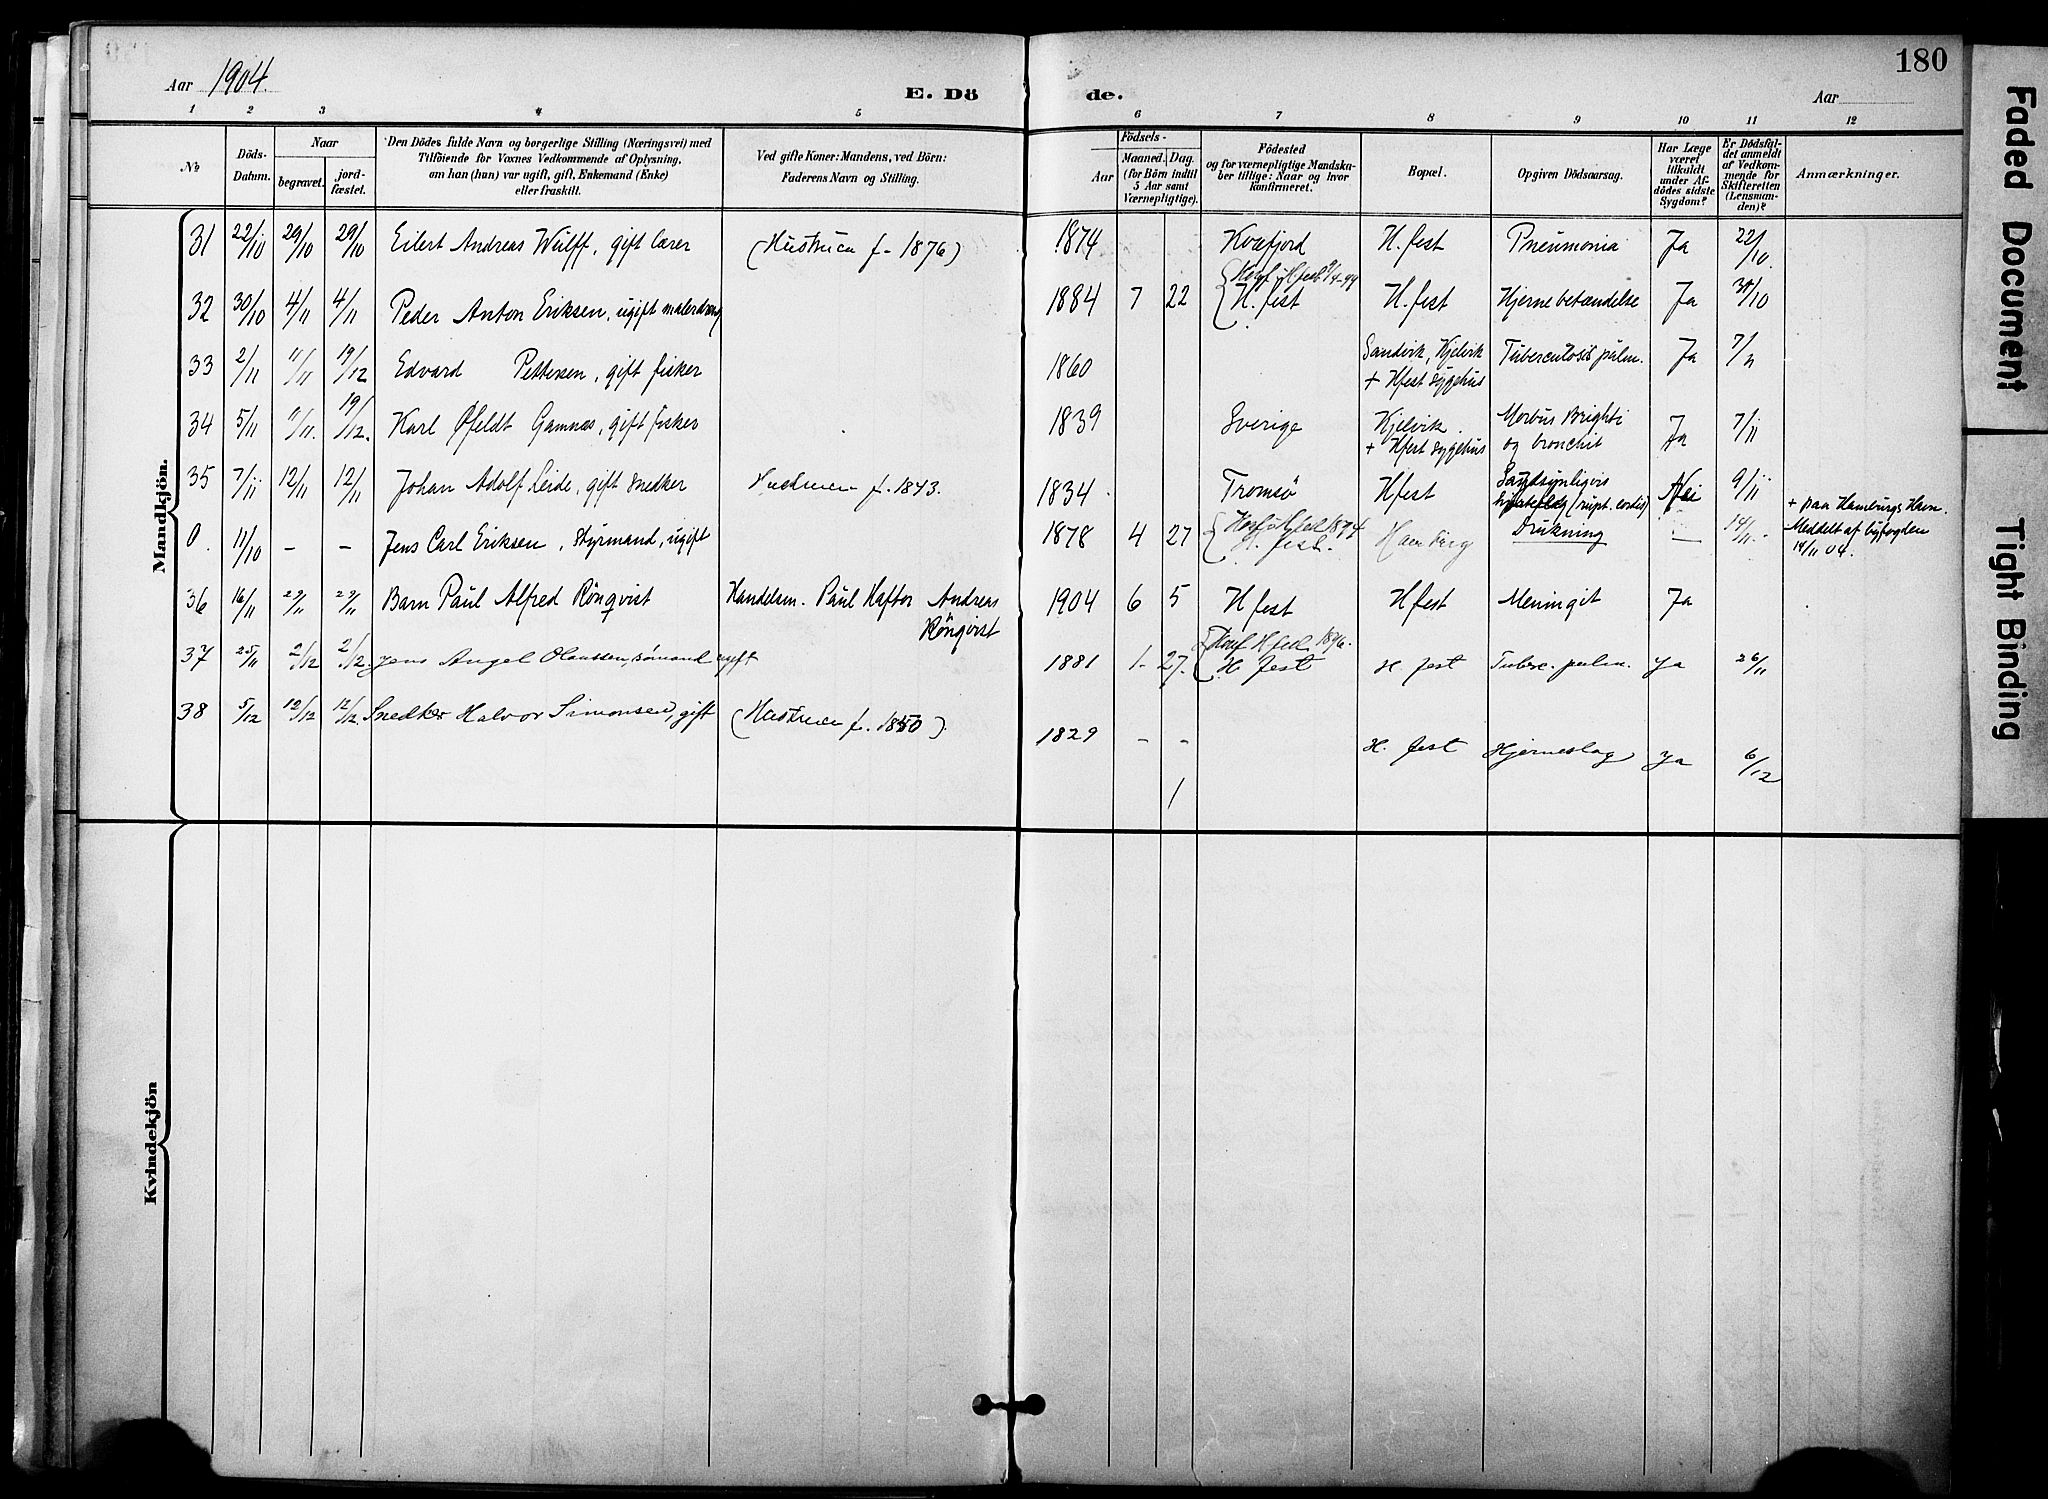 180
Aar 1904.
E. Dö de.
Aar
1 2 3 4 5 6 7 8 9 10 11 12
No
Döds-Datum.
Naar
begravet.
jord-fæstet.
Den Dödes fulde Navn og borgerlige Stilling (Næringsvei) med
Tilföiende for Voxnes Vedkommende af Oplysning,
om han (hun) var ugift, gift, Enkemand (Enke)
eller fraskilt.
Ved gifte Koner: Mandens, ved Börn:
Faderens Navn og Stilling.
Födsels-
Aar
Maaned. Dag.
(for Börn indtil
5 Aar samt
Værnepligtige).
Födested
og for værnepligtige Mandska-
ber tillige: Naar og hvor
konfirmeret.
Bopæl.
Opgiven Dödsaarsag.
Har Læge
været
tilkaldt
under Af-
dödes sidste
Sygdom?
Er Dödsfal-
det anmeldt
af Vedkom-
mende for
Skifteretten
(Lensman-
den)?
Anmærkninger.
Mandkjön.
31 22/10 29/10 29/10 Eilert Andreas Wulff, gift lærer (Hustruen f. 1876) 1874 Kvæfjord H.fest Pneumonia Ja 22/10.
32 30/10 4/11 4/11 Peder Anton Eriksen, ugift malerdreng 1884 7 22 H.fest H.fest Hjernebetændelse Ja 30/10
33 2/11 11/11 19/12 Edvard Pettersen, gift fisker 1860 Sandvik, Kjelvik Tuberculosis pulm. Ja 7/11
+ Hfest sygehus
34 5/11 11/11. 19/12. Karl Øfeldt Gamnæs, gift fisker 1839 Sverige Kjelvik. Morbus Brighti Ja 7/11
+ Hfest sygehus og bronchit
35 7/11 12/11 12/11 Johan Adolf Leide, gift snedker Hustruen f. 1843. 1834 Tromsø Hfest Sandsynligvis (rupt. cordis) Nei 9/11
+ paa Hamburgs Havn.
0. 11/10 - - Jens Carl Eriksen, Styrmand, ugift 1878 4 27 H. fest. Hamburg Drukning — 14/11. Meddelt af byfogden
14/11 04.
36 16/11 29/11 29/11 Barn Paul Alfred Rönqvist Handelsm. Paul Hafter Andreas 1904 6 5 Hfest Hfest Meningit Ja
Rönqvist
Konf H.fest 1896.
37 25/11 2/12 2/12. Jens Angel Olaussen, sömand ugift 1881 1- 27. H. fest H. fest Tuberc. pulm. Ja 26/11
38 5/12 12/12 12/12 Snedker Halvor Simonsen, gift (Hustruen f. 1850). 1829 - - H. fest Hjerneslag Ja 6/12
1
Kvindekjön
Faded Document
Tight Binding